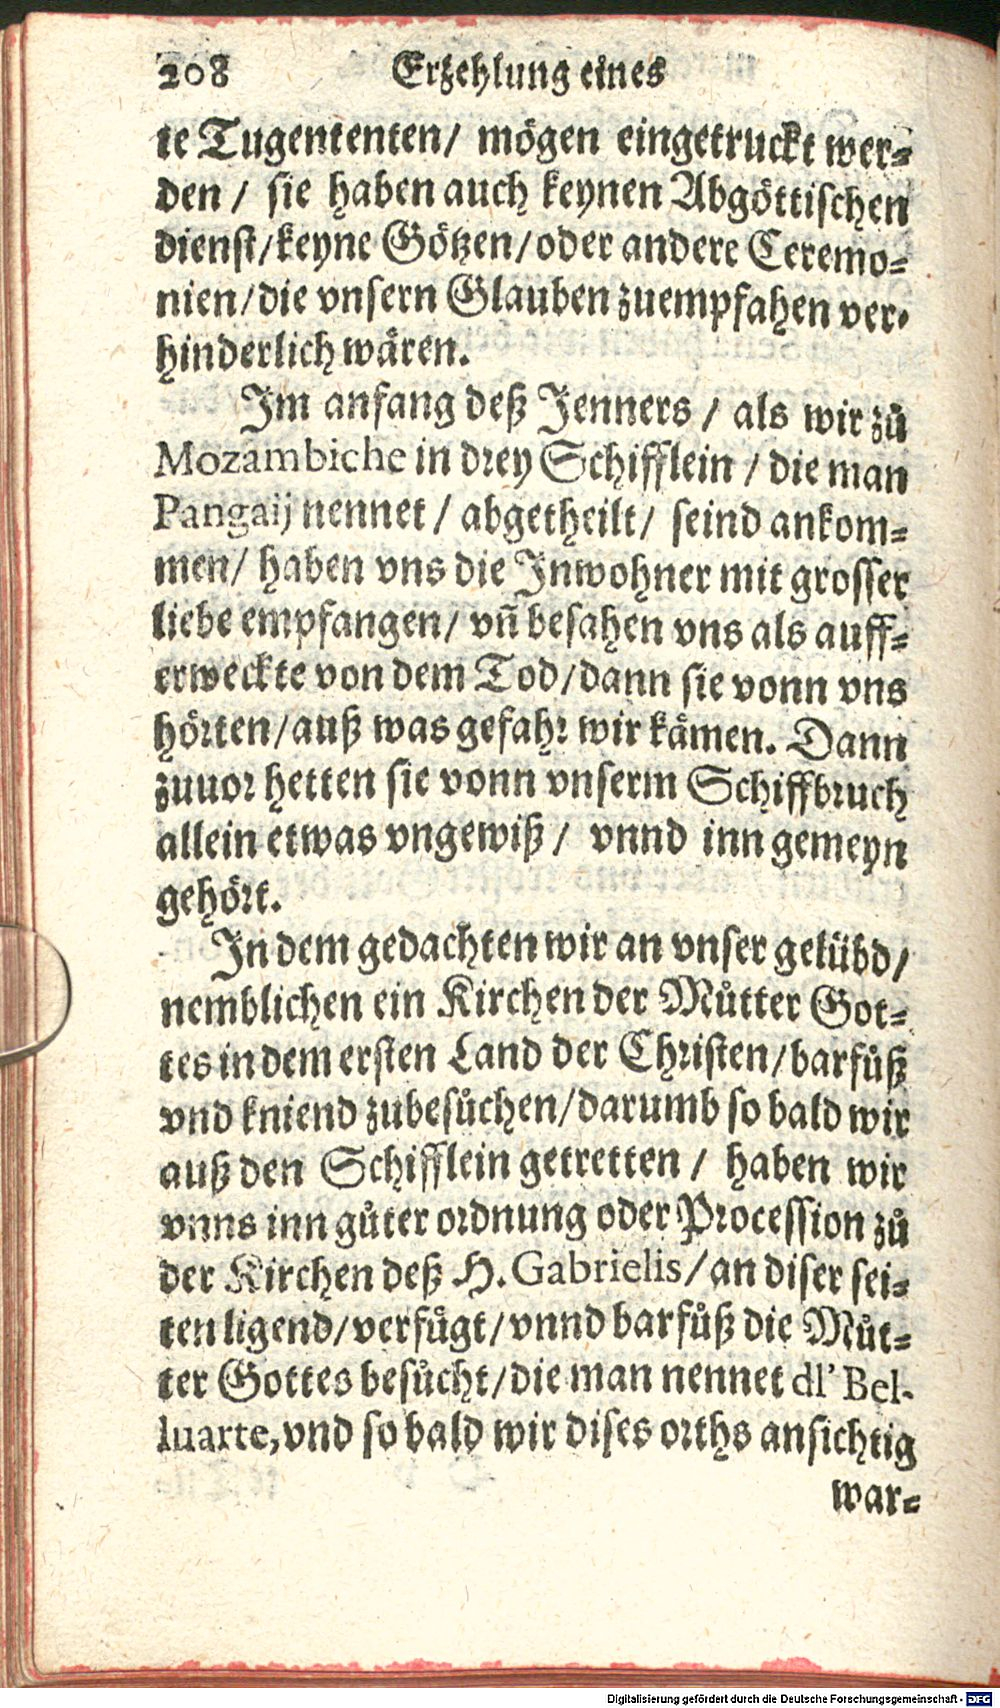 208 Erzehlung eines
te Tugententen/ mögen eingetruckt wer-
den / sie haben auch keynen Abgöttischen
dienst/keyne Götzen/oder andere Ceremo-
nien/die vnsern Glauben zuempfahen ver-
hinderlich wären.
Im anfang deß Jenners / als wir zů
Mozambiche in drey Schifflein / die man
Pangaij nennet / abgetheilt/ seind ankom-
men/ haben vns die Inwohner mit grosser
liebe empfangen/ vñ besahen vns als auff-
erweckte von dem Tod/dann sie vonn vns
hörten/auß was gefahr wir kämen. Dann
zuuor hetten sie vonn vnserm Schiffbruch
allein etwas vngewiß / vnnd inn gemeyn
gehört.
In dem gedachten wir an vnser gelübd/
nemblichen ein Kirchen der Můtter Got-
tes in dem ersten Land der Christen/barfůß
vnd kniend zubesůchen/darumb so bald wir
auß den Schifflein getretten / haben wir
vnns inn gůter ordnung oder Procession zů
der Kirchen deß H. Gabrielis/an diser sei-
ten ligend/verfůgt/vnnd barfůß die Můt-
ter Gottes besůcht/die man nennet dl' Bel-
luarte,vnd so bald wir dises orths ansichtig
war-
Digitalisierung gefördert durch die Deutsche Forschungsgemeinschaft - DFG